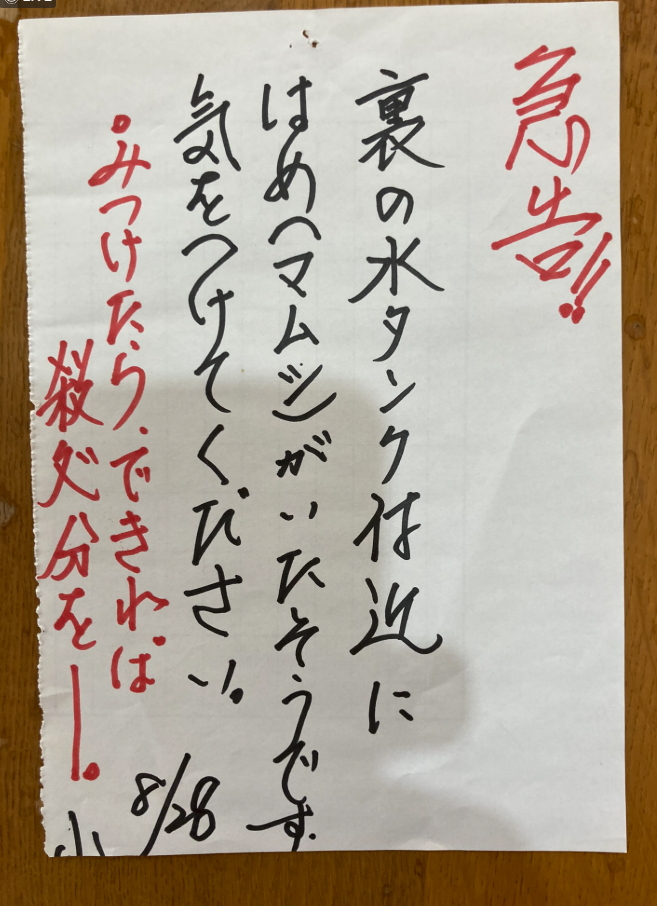 急告!!
裏の水タンク付近に
はめ(マムシ)がいたそうです.
気をつけてください。
・みつけたら、できれば
殺処分をー。
8/28
小